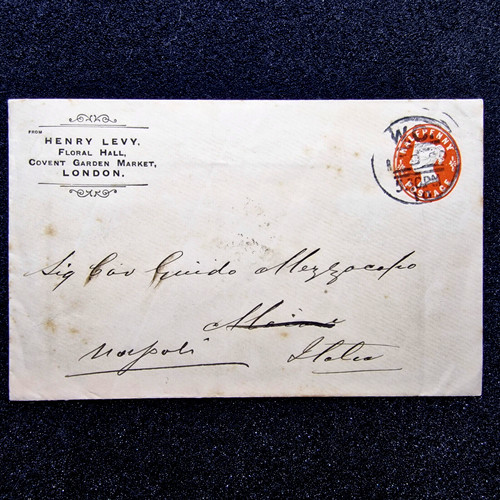 FROM
HENRY LEVY,
FLORAL HALL,
COVENT GARDEN MARKET,
LONDON.
HALFPENNY
POSTAGE
W.C.
Sig Cav Guido Mezzacapo
Napoli Italia